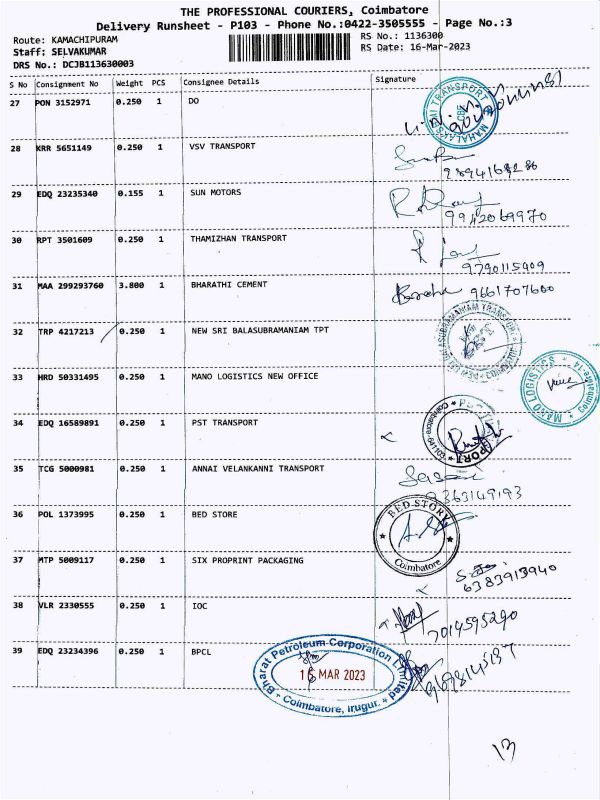 THE PROFESSIONAL COURIERS, Coimbatore
Delivery Runsheet - P103 - Phone No.:0422-3505555 - Page No.:3
Route: KAMACHIPURAM
RS No.: 1136300
Staff: SELVAKUMAR
RS Date: 16-Mar-2023
DRS No.: DCJB113630003
S No Consignment No Weight PCS Consignee Details Signature
27 PON 3152971 0.250 1 DO
MAHALAKSHMI TRANSPORT CBE
28 KRR 5651149 0.250 1 VSV TRANSPORT
29 EDQ 23235340 0.155 1 SUN MOTORS
9942069970
30 RPT 3501609 0.250 1 THAMIZHAN TRANSPORT
9790115909
31 MAA 299293760 3.800 1 BHARATHI CEMENT
9661707600
32 TRP 4217213 0.250 1 NEW SRI BALASUBRAMANIAM TPT
33 HRD 50331495 0.250 1 MANO LOGISTICS NEW OFFICE
MANO LOGISTICS Coimbatore-14
34 EDQ 16589891 0.250 1 PST TRANSPORT
35 TCG 5000981 0.250 1 ANNAI VELANKANNI TRANSPORT
9363149193
36 POL 1373995 0.250 1 BED STORE
BED STORY Coimbatore
37 MTP 5009117 0.250 1 SIX PROPRINT PACKAGING
6383913940
38 VLR 2330555 0.250 1 IOC
7014595290
39 EDQ 23234396 0.250 1 BPCL
Bharat Petroleum Corporation Limited
16 MAR 2023
Coimbatore, Irugur.
13